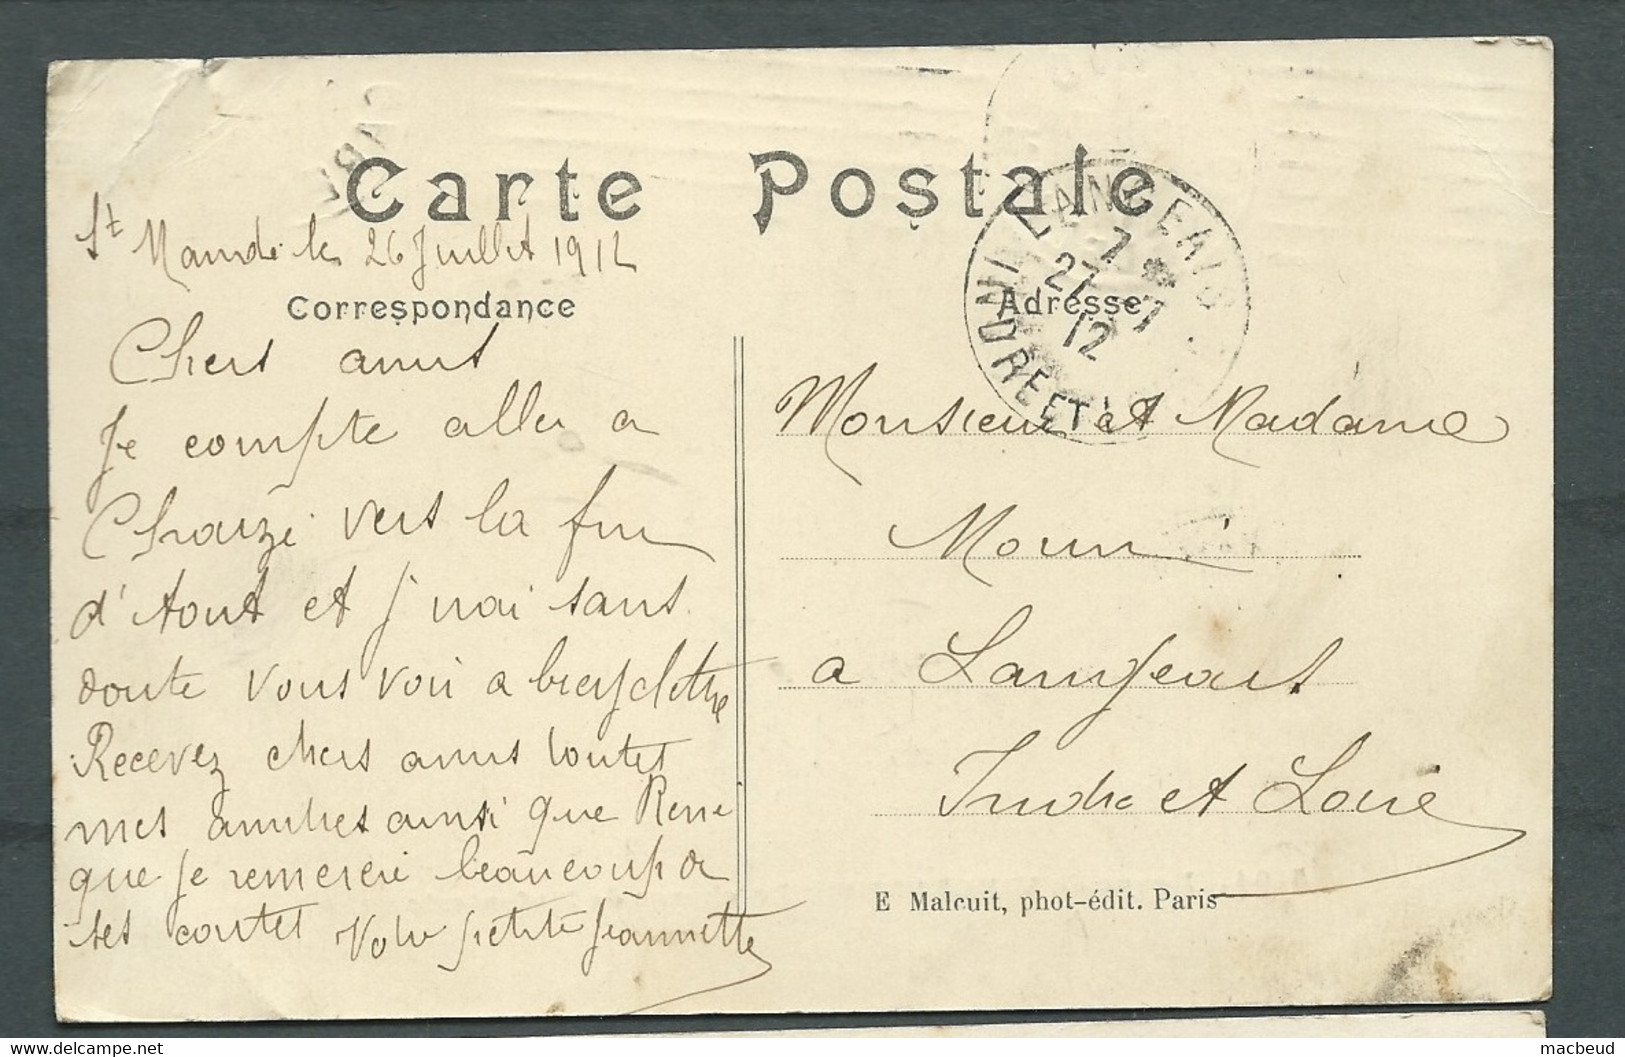 Carte Postale
St Mandé le 26 Juillet 1912
Correspondance
Adresse
LANGEAIS
7 *
27 -7
12
INDRE ET
Chers amis
Je compte aller a
Chouzé vers la fin
d'Aout et j'irai sans
doute vous voir a bicyclette
Recevez chers amis toutes
mes amitiés ainsi que René
que je remercie beaucoup de
ses cartes Votre petite Jeannette
Monsieur et Madame
a Langeais
Indre et Loire
E Malcuit, phot-édit. Paris
macbeud